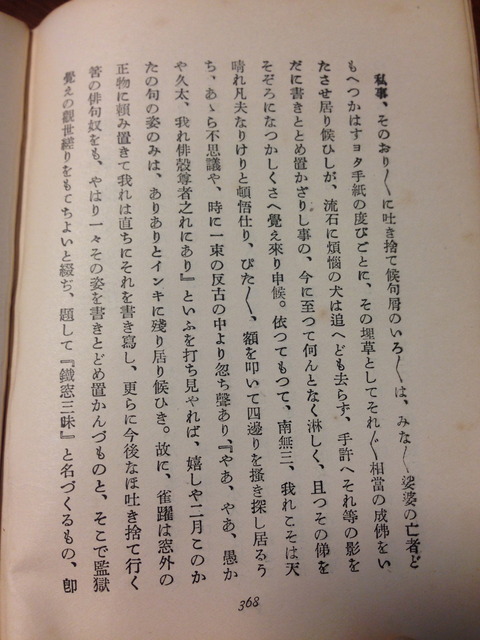 私事、そのおり〳〵に吐き捨て候句屑のいろ〳〵は、みな〳〵娑婆の亡者ど
もへつかはすヨタ手紙の度びごとに、その埋草としてそれ〴〵相當の成佛をい
たさせ居り候ひしが、流石に煩惱の犬は追へども去らず、手許へそれ等の影を
だに書きととめ置かざりし事の、今に至つて何んとなく淋しく、且つその俤を
そぞろになつかしくさへ覺え來り申候。依つてもつて、南無三、我れこそは天
晴れ凡夫なりけりと頓悟仕り、ぴた〳〵、額を叩いて四邊りを搔き探し居るう
ち、あゝら不思議や、時に一束の反古の中より忽ち聲あり、『やあ、やあ、愚か
や久太、我れ俳殻尊者之れにあり』といふを打ち見やれば、嬉しや二月このか
たの句の姿のみは、ありありとインキに殘り居り候ひき。故に、雀躍は窓外の
正物に賴み置きて我れは直ちにそれを書き寫し、更らに今後なほ吐き捨て行く
筈の俳句奴をも、やはり一々その姿を書きとどめ置かんづものと、そこで監獄
覺えの觀世縒りをもてちよいと綴ち、題して『鐵窓三昧』と名づくるもの、卽
368